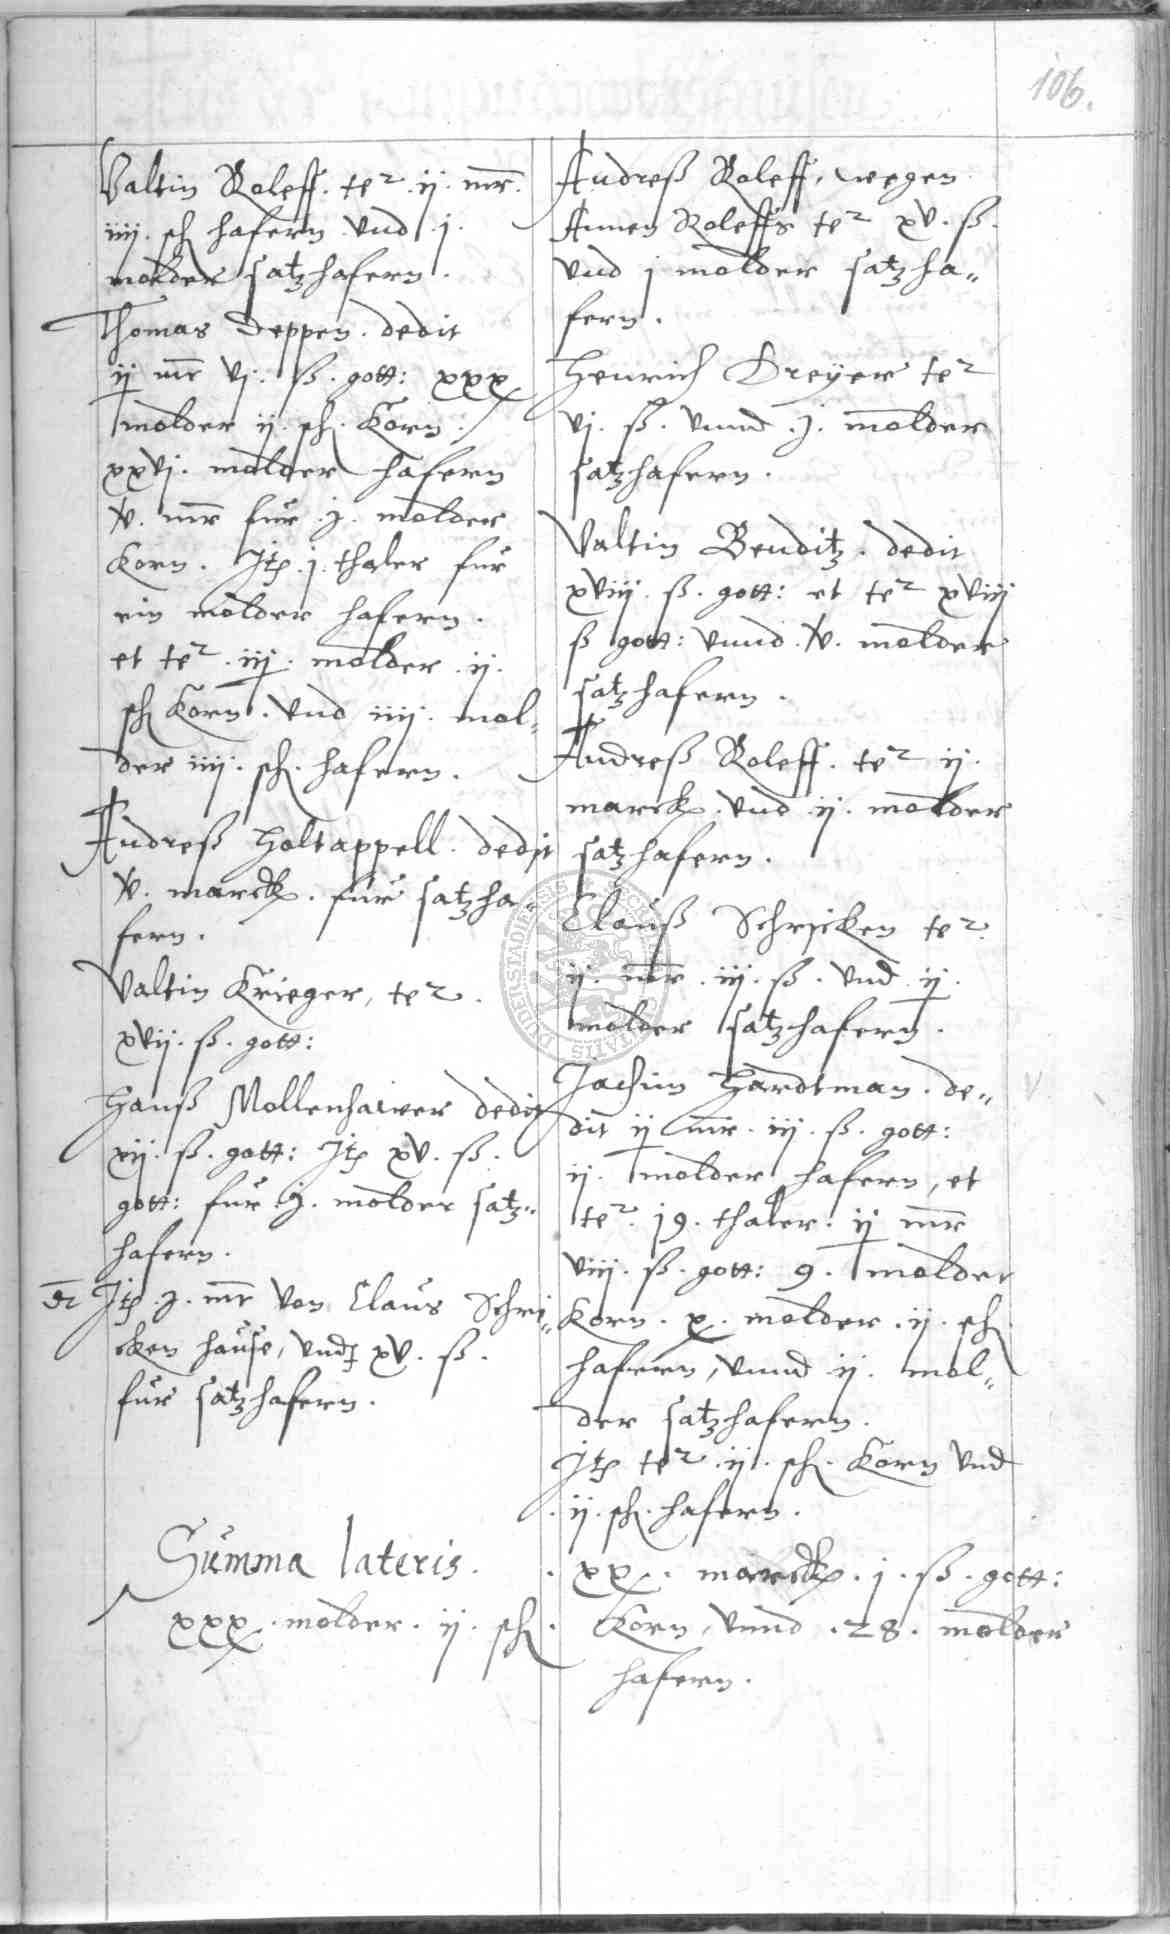 106.
Valtin Roleff. te² .ij. mr̄.
iiij. sch hafern. vnd .j.
molder satzhafern.
Thomas Deppen. dedit
ij mr̄ vj. ß. gott: xxx
molder ij. sch. Korn.
xxvj. molder hafern
v. mr̄ fur .j. molder
Korn. Itē .j. thaler fur
ein molder hafern.
et te² .iij. molder .ij.
sch Korn. vnd iiij. mol„
der iiij. sch. hafern.
Andreß Holtappell. dedit
v. marck. fur satzha„
fern.
Valtin Krieger, te².
xvij. ß. gott:
Hanß Mollenhawer dedit
xij. ß. gott: Itē xv. ß.
gott: fur .j. molder satz„
hafern.
Itē .j. mr̄ von Claus Schri„
cken hause, vnd xv. ß.
fur satzhafern.
Andreß Roleff, wegen
Annen Roleffs te² xv. ß.
vnd j molder satzha„
fern.
Henrich Dreÿer te²
vj. ß. vnnd .j. molder
satzhafern.
Valtin Benditz. dedit
xviij. ß. gott: et te² xviij
ß gott: vnnd .v. molder
satzhafern.
Andreß Roleff. te² ij.
marck. vnd .ij. molder
satzhafern.
Clauß Schricken te².
ij. mr̄ .iij. ß. vnd ij.
molder satzhafern.
Jachim Hardtman. de„
dit ij mr̄. iij. ß. gott:
ij. molder hafern, et
te². 19. thaler. ij mr̄
viij. ß. gott: 9. molder
Korn. x. molder .ij. sch
hafern, vnnd ij. mol„
der satzhafern.
Itē te² .ij. sch. Korn vnd
.ij. sch. hafern.
Summa lateris. . xx. marck. j. ß. gott:
xxx. molder. ij. sch. Korn, vnnd .28. molder
hafern.